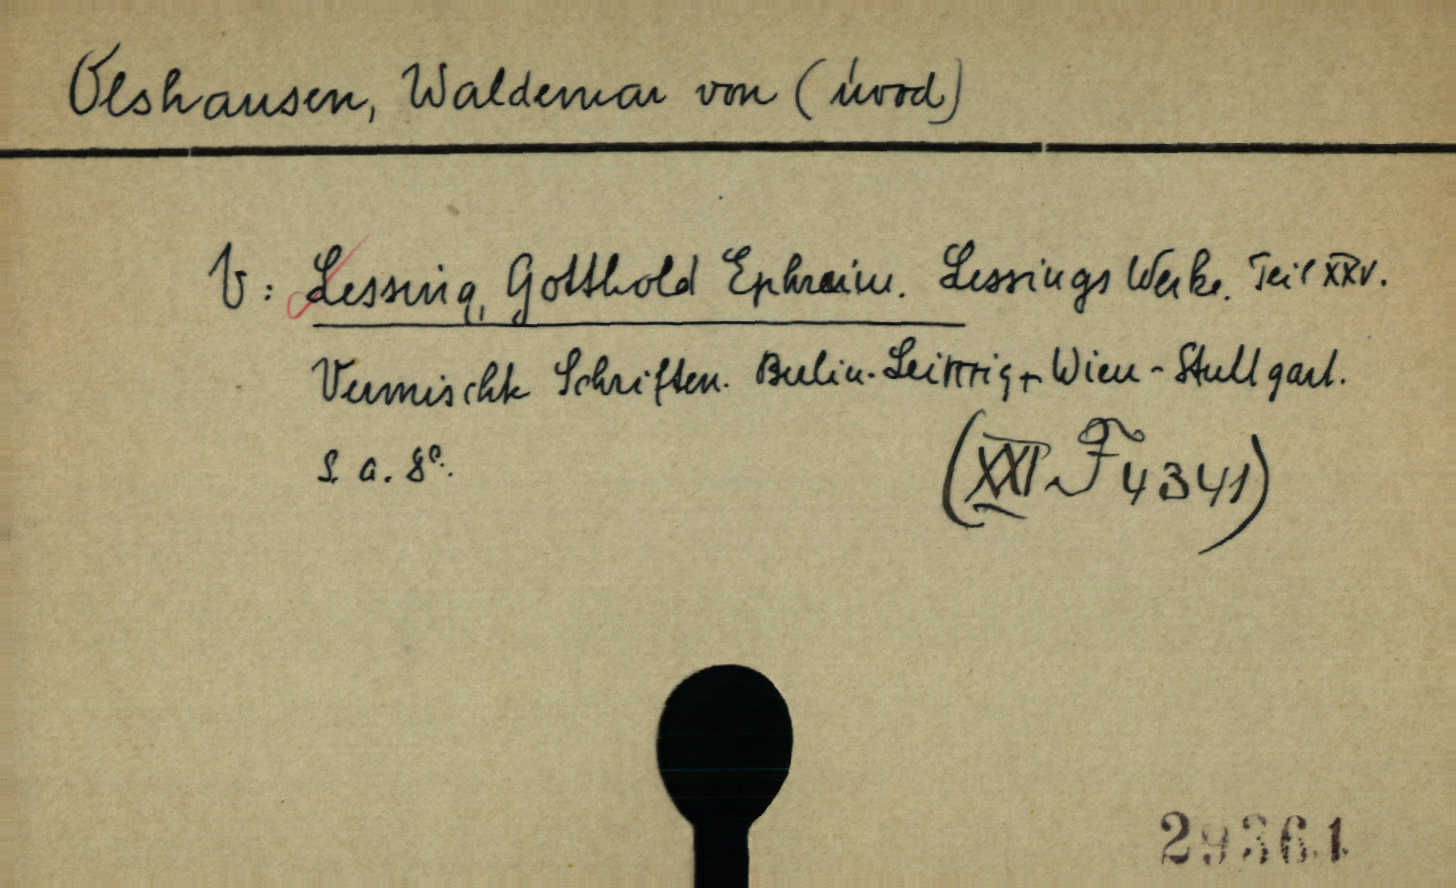 Olshausen, Waldemar von (úvod)
V: Lessing, Gotthold Ephraim. Lessings Werke. Teil XXV.
Vermischte Schriften. Berlin-Leipzig-Wien-Stuttgart.
s. a. 8°.
(XXI F 4341)
29361